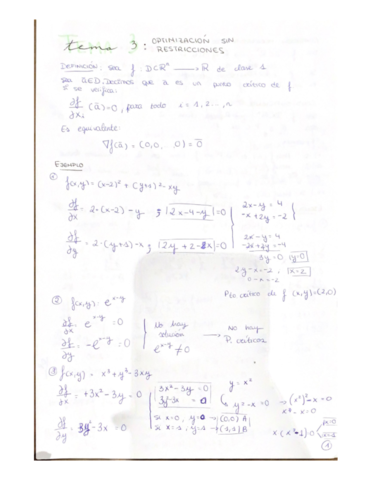 tema 3: OPTIMIZACIÓN SIN RESTRICCIONES
DEFINICIÓN: sea f: D⊂Rⁿ → R de clase 1
sea ā∈D. Decimos que ā es un punto crítico de f
si se verifica:
∂f/∂xᵢ (ā)=0, para todo i=1,2...,n
Es equivalente:
∇f(ā) = (0,0, ,0) = 0̄
EJEMPLO
① f(x,y) = (x-2)² + (y+1)² - xy
∂f/∂x = 2·(x-2) - y ; 2x-4-y = 0
∂f/∂y = 2·(y+1) - x ; 2y+2-x = 0
2x-y = 4
-x+2y = -2
2x-y = 4
-2x+4y = -4
3y = 0 y=0
2y-x = -2 x=2
0-x = -2
Pto crítico de f (x,y) = (2,0)
② f(x,y) = e^(x-y)
∂f/∂x = e^(x-y) = 0
∂f/∂y = -e^(x-y) = 0
No hay solución
e^(x-y) ≠ 0
→ No hay P. críticos
③ f(x,y) = x³+y³-3xy
∂f/∂x = +3x²-3y = 0
∂f/∂y = 3y²-3x = 0
3x²-3y = 0
y = x²
y²-x = 0 → (x²)²-x = 0
x⁴-x = 0
x(x³-1) = 0 x=0 x=1
si x=0, y=0 → (0,0) A
si x=1, y=1 → (1,1) B
①